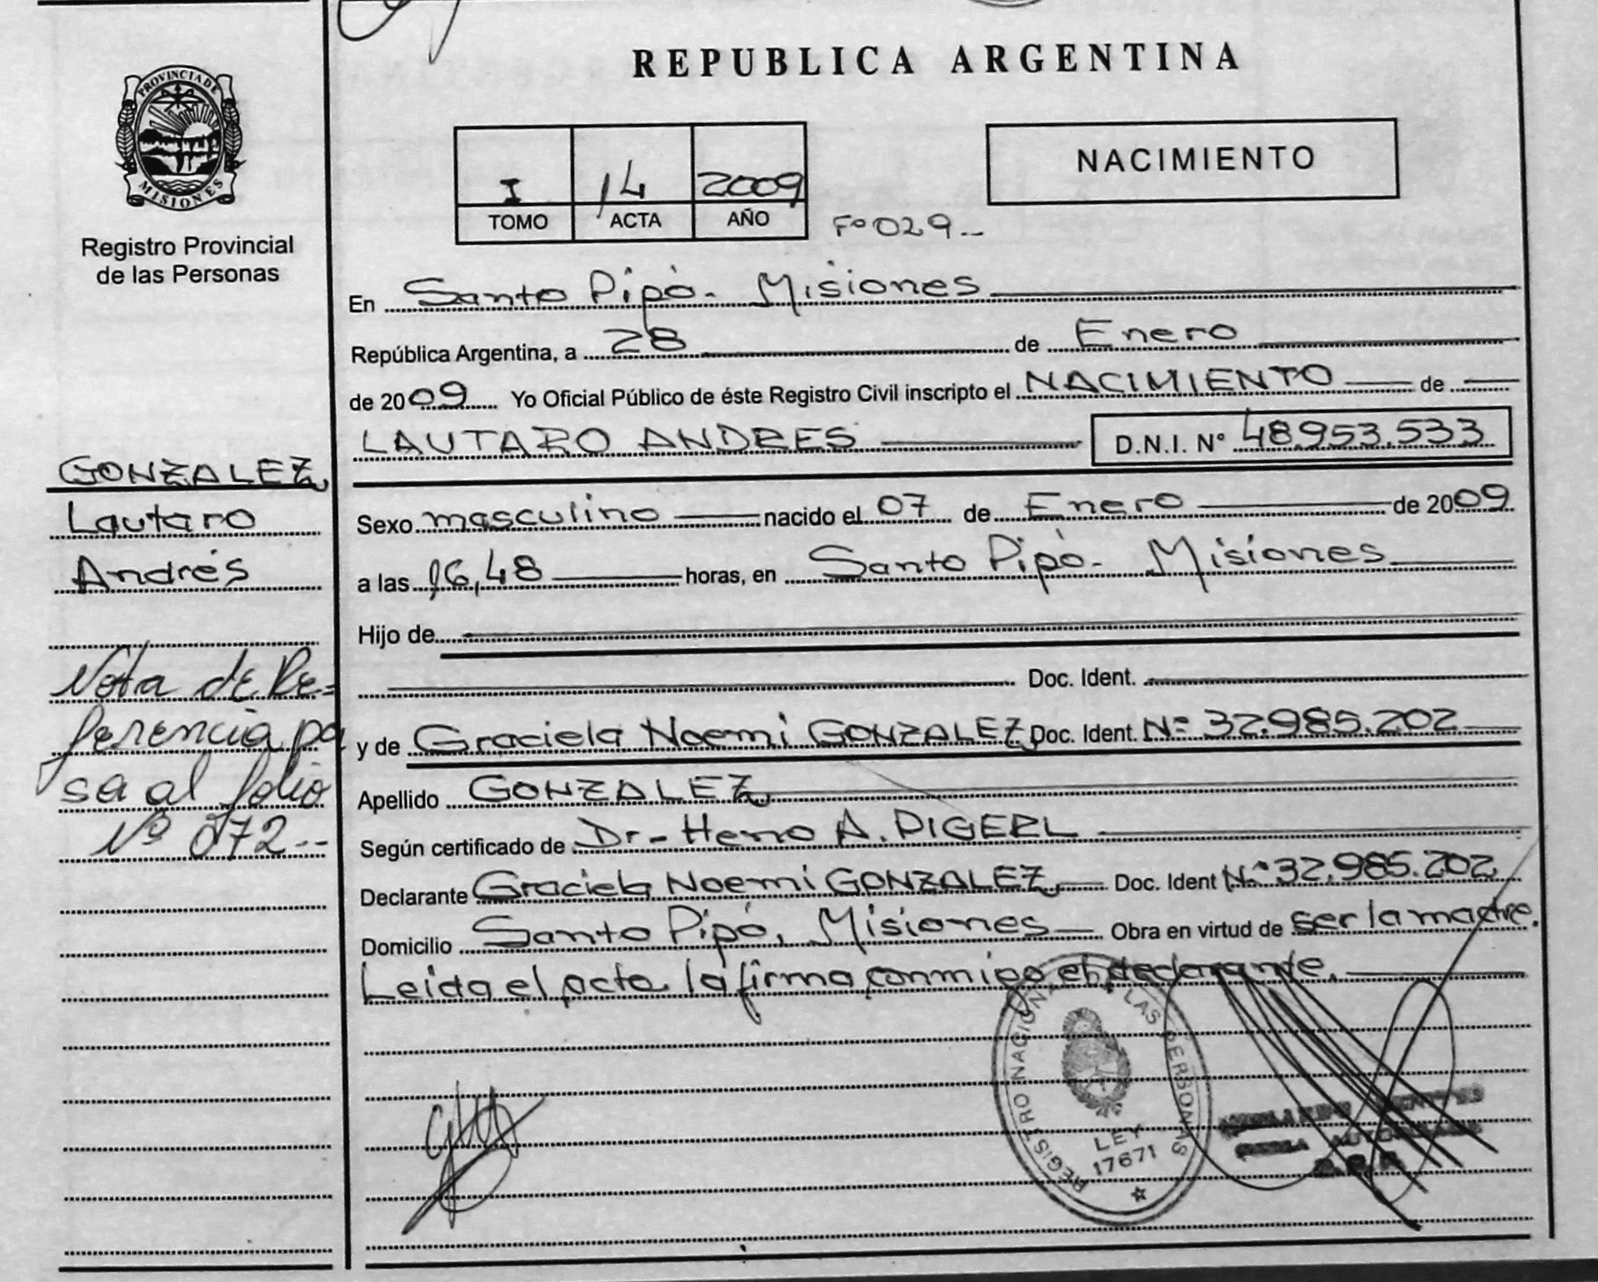 REPUBLICA ARGENTINA
PROVINCIA DE
MISIONES
Registro Provincial
de las Personas
I 14 2009
TOMO ACTA AÑO
Fº 029
NACIMIENTO
En Santo Pipó - Misiones
República Argentina, a 28 de Enero
de 2009 Yo Oficial Público de éste Registro Civil inscripto el NACIMIENTO de
LAUTARO ANDRES D.N.I. Nº 48.953.533
GONZALEZ,
Lautaro
Andrés
Nota de Re-
ferencia pa
sa al folio
Nº 072--
Sexo masculino nacido el 07 de Enero de 2009
a las 16,48 horas, en Santo Pipó - Misiones
Hijo de
Doc. Ident.
y de Graciela Noemi GONZALEZ, Doc. Ident. Nº 32.985.202
Apellido GONZALEZ
Según certificado de Dr - A. DIGERL
Declarante Graciela Noemi GONZALEZ, Doc. Ident Nº 32.985.202,
Domicilio Santo Pipó, Misiones Obra en virtud de ser la madre.
Leida el acta la firma conmigo el declarante.
REGISTRO NACIONAL DE LAS PERSONAS
LEY
17671